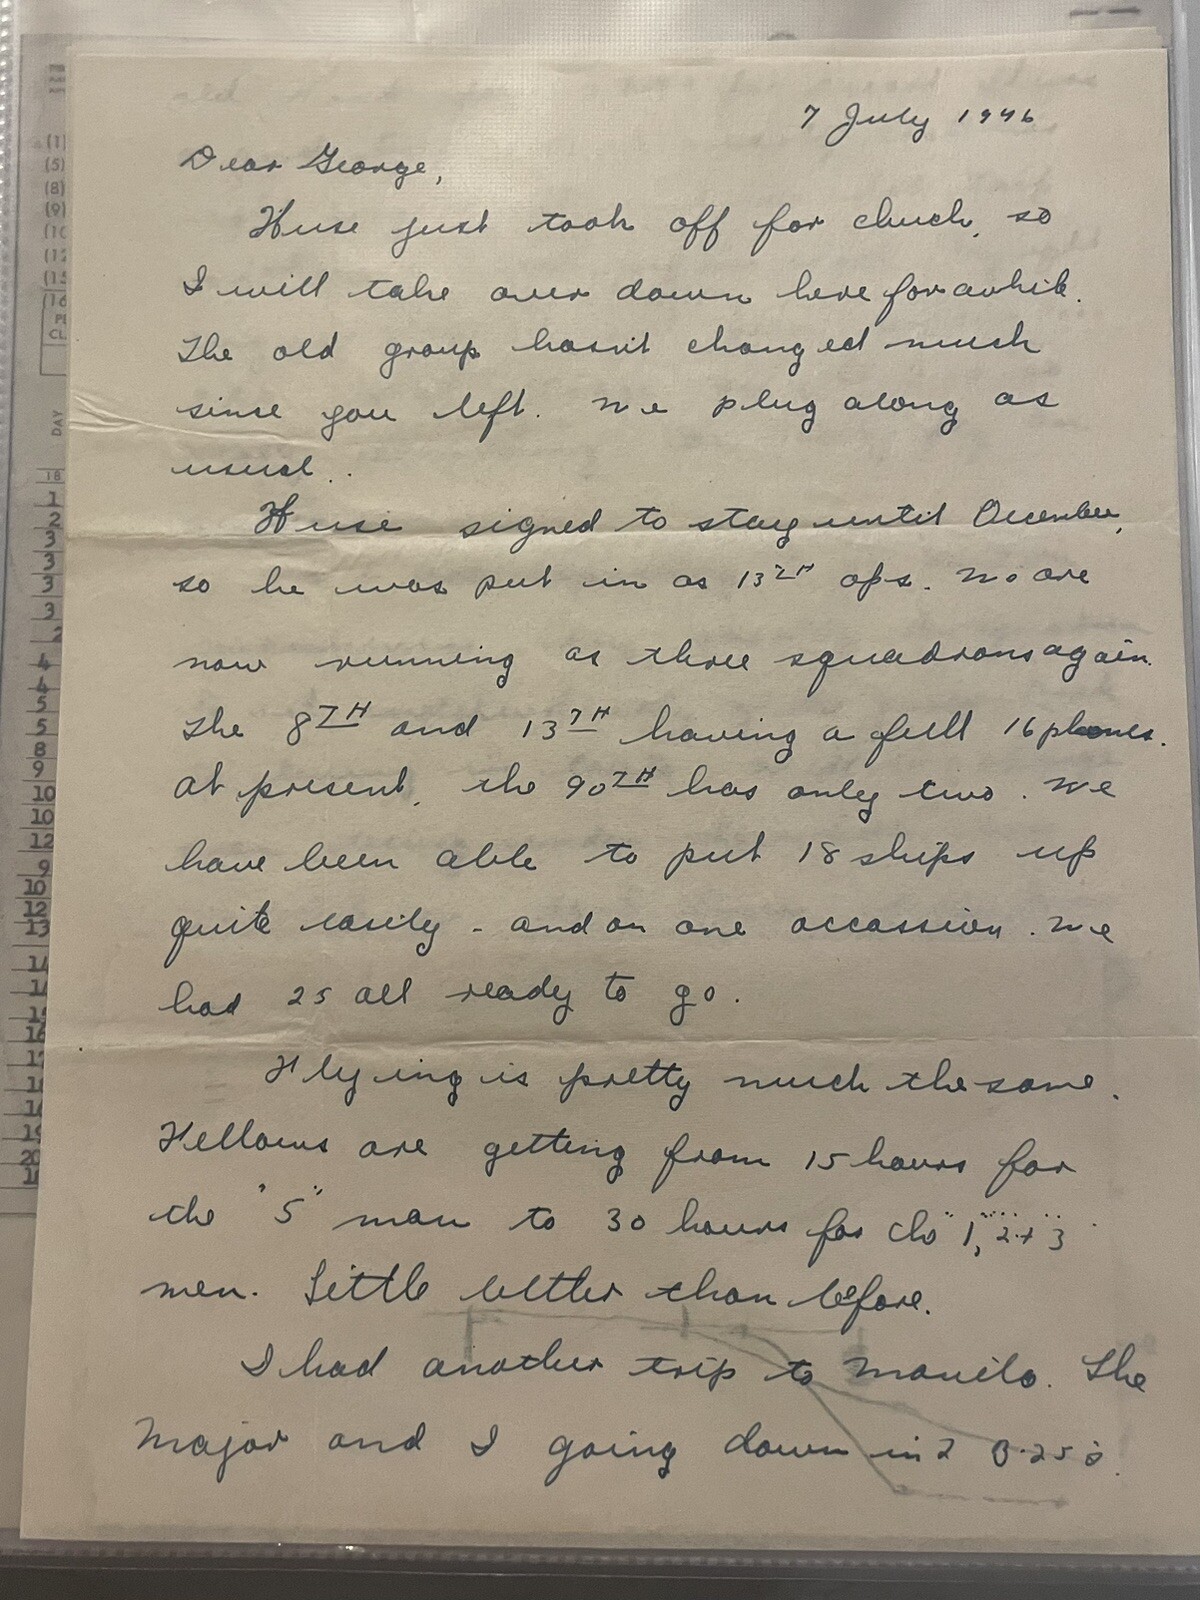 7 July 1946
Dear George,
Huse just took off for chuch, so
I will take over down here for awhile.
The old group hasn't changed much
since you left. We plug along as
usual.
Huse signed to stay until December,
so he was put in as 13TH ops. We are
now running as three squadrons again.
The 8TH and 13TH having a full 16 planes.
At present, the 90TH has only two. We
have been able to put 18 ships up
quite easily - and on one occassion. We
had 25 all ready to go.
Flying is pretty much the same.
Fellows are getting from 15 hours for
the "5" man to 30 hours for the "1", "2" + "3"
men. Little better than before.
I had another trip to Manila. The
Major and I going down in 2 B-25's.
(1)
(5)
(8)
(9)
DAY
18
1
2
3
3
3
3
2
4
4
5
5
8
9
10
10
12
9
10
12
13
16
19
20